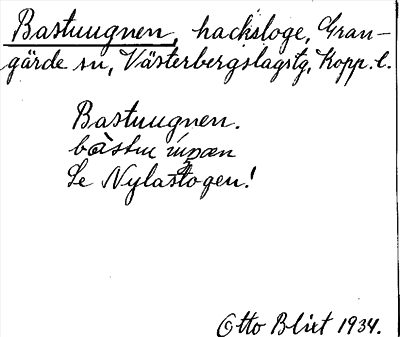 Bastuugnen, hacksloge, Gran-
gärde sn, Västerbergslagstg, Kopp. l.
Bastuugnen.
Se Nylastogen!
Otto Blixt 1934.